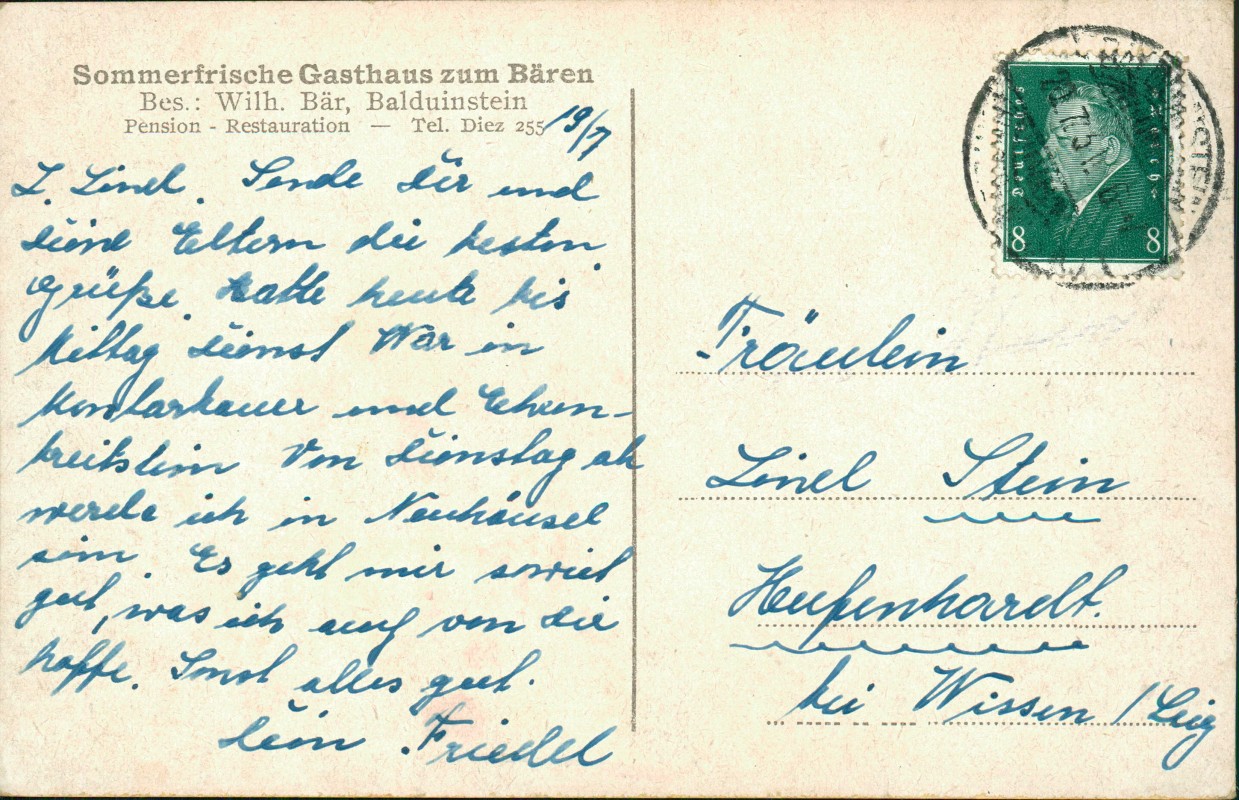 Sommerfrische Gasthaus zum Bären
Bes.: Wilh. Bär, Balduinstein
Pension - Restauration — Tel. Diez 255
19/7
L. Linel. Sende dir und
deine Eltern die besten
Grüße. Hatte heute bis
Mittag Dienst War in
und Ehren-
breitstein Von Dienstag ab
werde ich in Neuhäusel
sein. Es geht mir soweit
gut, was ich auch von die
hoffe. Sonst alles gut.
Dein Friedel
Deutsches Reich
8 8
Fräulein
Linel Stein
Hufenhardt.
bei Wissen /Sieg